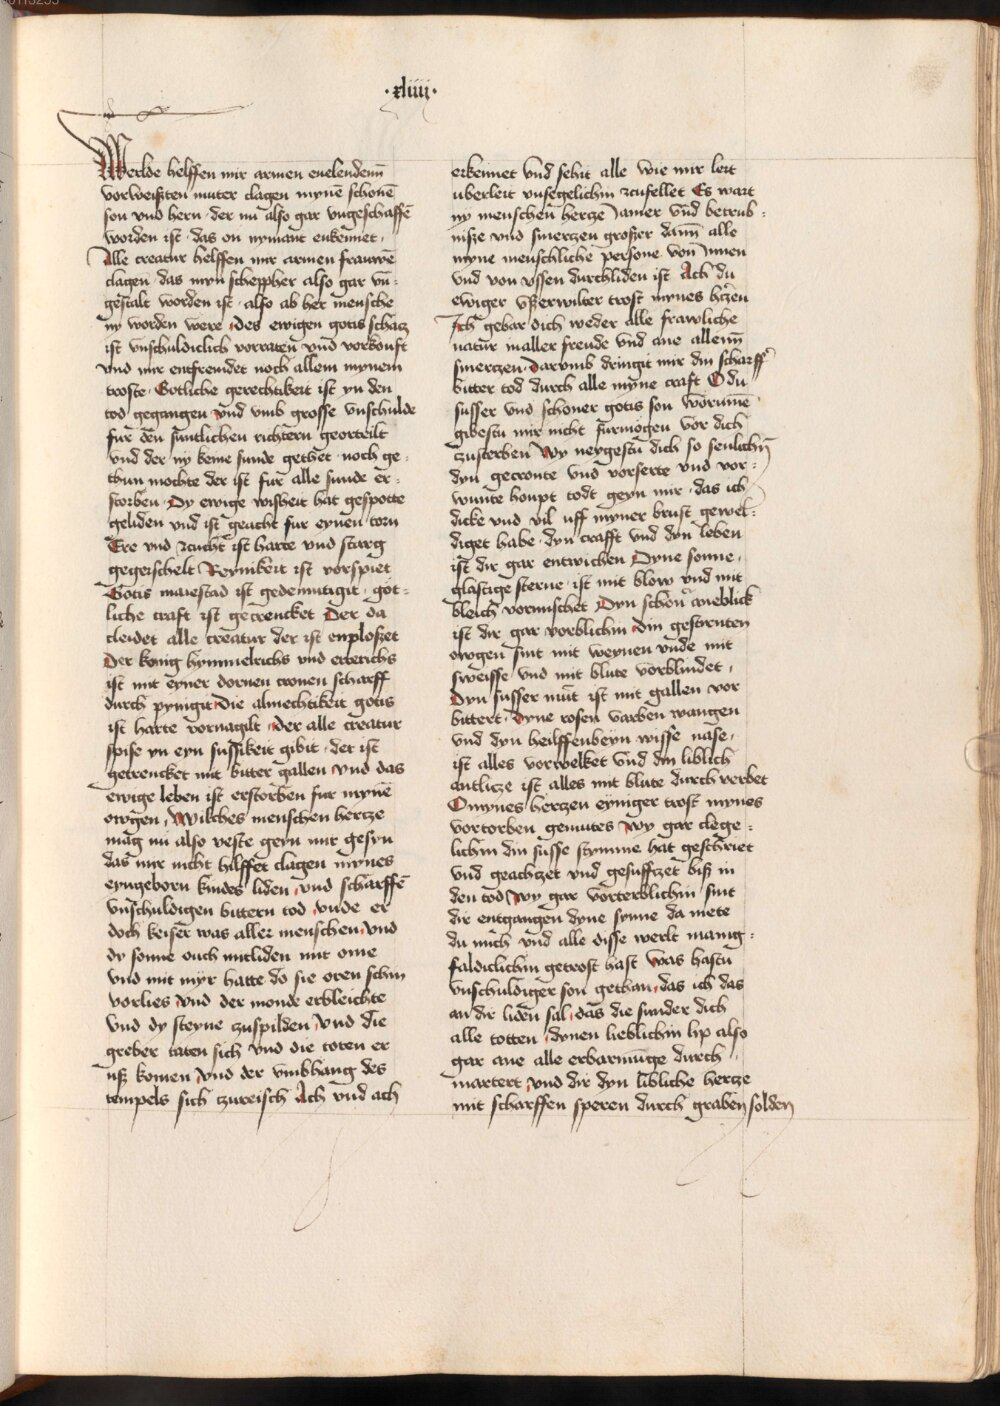 ·xliiii·
Werlde helffen mir armen enelendenn
vorweißten muter clagen mynē schonē
son vnd hern · der nu also gar vngeschaffē
worden ist · das on nymant enkennet ·
Alle creatur helffen mir armen frauwē
clagen · das myn scheppher also gar vn-
gestalt worden ist · also ab her mensche
ny worden were · des ewigen gotis schacz
ist vnschuldiclich vorraten vnd vorkouft
vnd mir entfremdet noch allem mynem
troste · Gotliche gerechtikeit ist yn den
tod gegangen vnd vmb grosse vnschulde
fur den suntlichen richtern georteilt
vnd der ny keine sunde gethet · noch ge-
thun mochte der ist fur alle sunde er-
storben · Dy ewige wisheit hat gespotte
geliden vnd ist geacht fur eynen torn
Ere vnd zcucht ist harte vnd starg
gegeischelt Reynikeit ist vorspiet
Gotis maiestad ist gedemutigit · got-
liche craft ist gecrencket Der da
cleidet alle creatur der ist enploßet
Der konig hymmelrichs vnd ertrichs
ist mit eyner dornen cronen scharff
durch pynigit Die almechtikeit gotis
ist harte vornagilt · der alle creatur
spise yn eyn sussikeit gibit · der ist
getrencket mit bitter gallen vnd das
ewige leben ist erstorben fur mynē
owgen · Wilches menschen hercze
mag nu also veste geyn mir gesyn
das mir nicht hilffet clagen mynes
eyngeborn kindes liden · vnd scharffē
vnschuldigen bittern tod · vnde er
doch keiser was aller menschen · vnd
dy sonne ouch mitliden mit ome
vnd mit myr hatte do sie oren schin
vorlies vnd der monde erbleichte
vnd dy steyne zuspilden · vnd die
greber taten sich vnd die toten er
uß komen · vnd der vmbhang des
tempels sich zureisch Ach vnd ach
erkennet vnd sehit alle wie mir leit
uberleit vnsegelichin zcufellet Es wart
ny menschen hercze Jamer vnd betrub-
niße vnd smerczen großer dann alle
myne menschliche persone von Innen
vnd von vssen durchliden ist Ach du
ewiger vßerwilter trost mynes hčzen
Ich gebar dich weder alle frawliche
natur in aller freude vnd ane allenn
smerczen · Darvmb dringit mir din scharff
bitter tod durch alle myne craft O du
susser vnd schoner gotis son worumē
gibestu mir nicht furmogen vor dich
zusterben Wy neygestu dich so senlichin
dyn gecronte vnd vorserte vnd vor-
wunte houpt todt geyn mir · das ich
dicke vnd vil uff myner brust gewel-
diget habe · dyn crafft vnd dyn leben
ist dir gar entwichen Dyne sonne ·
glastige sterne · ist mit blow vnd mit
bleich vormischet Dyn schon aneblick
ist dir gar vorblichin · din gestrnten
owgen sint mit weynen vnde mit
sweisse vnd mit blute vorblindet ·
Dyn susser mūt ist mit gallen vor
bittert · dyne rosen varben wangen
vnd dyn heilffenbeyn wisse nase ·
ist alles vorwelket vnd din liblich
antlicze ist alles mit blute durch verbet
O mynes herczen eyniger trost mynes
vortorben gemutes wy gar clege-
lichin din susse stymme hat geschriet
vnd geachczet vnd gesuffczet biß in
den tod wy gar vorterblichin sint
dir entgangen dyne synne da mete
du mich vnd alle disse werlt manig-
faldiclichin getrost hast was hastu
vnschuldiger son gethan · das ich das
an dir liden sal · das die sunder dich
alle totten · dynen lieblichin lip also
gar ane alle erbarmūge durch
martert vnd dir dyn libliche hercze
mit scharffen speren durch graben solden